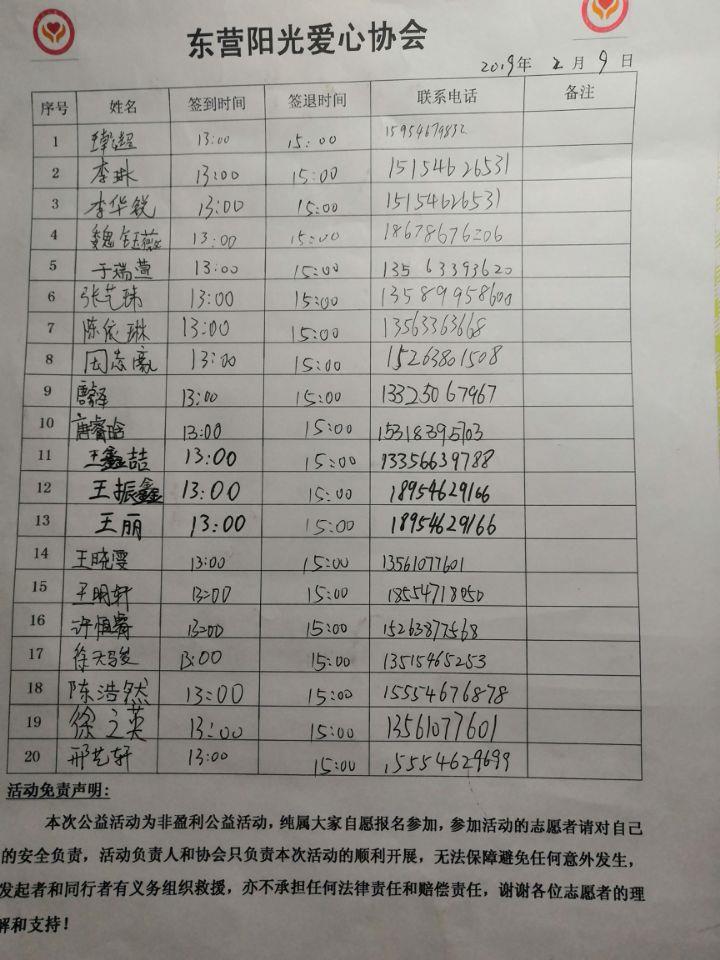 东营阳光爱心协会
2019年 2月 9日
序号 姓名 签到时间 签退时间 联系电话 备注
1 13:00 15:00 15954679832
2 李琳 13:00 15:00 15154626531
3 李华锐 13:00 15:00 15154626531
4 魏钰薇 13:00 15:00 18678676206
5 于瑞萱 13:00 15:00 13563393620
6 张艺琇 13:00 15:00 13589958600
7 陈依琳 13:00 15:00 13563363668
8 周志豪 13:00 15:00 15263801508
9 13:00 15:00 13325067967
10 唐睿晗 13:00 15:00 15318395703
11 王鑫喆 13:00 15:00 13356639788
12 王振鑫 13:00 15:00 18954629166
13 王丽 13:00 15:00 18954629166
14 王晓雯 13:00 15:00 13561077601
15 王明轩 13:00 15:00 18554718050
16 许恒睿 13:00 15:00 15263877568
17 徐天骏 13:00 15:00 13515465253
18 陈浩然 13:00 15:00 15554676878
19 徐立英 13:00 15:00 13561077601
20 邢艺轩 13:00 15:00 15554629699
活动免责声明:
本次公益活动为非盈利公益活动，纯属大家自愿报名参加，参加活动的志愿者请对自己
的安全负责，活动负责人和协会只负责本次活动的顺利开展，无法保障避免任何意外发生，
发起者和同行者有义务组织救援，亦不承担任何法律责任和赔偿责任，谢谢各位志愿者的理
解和支持！